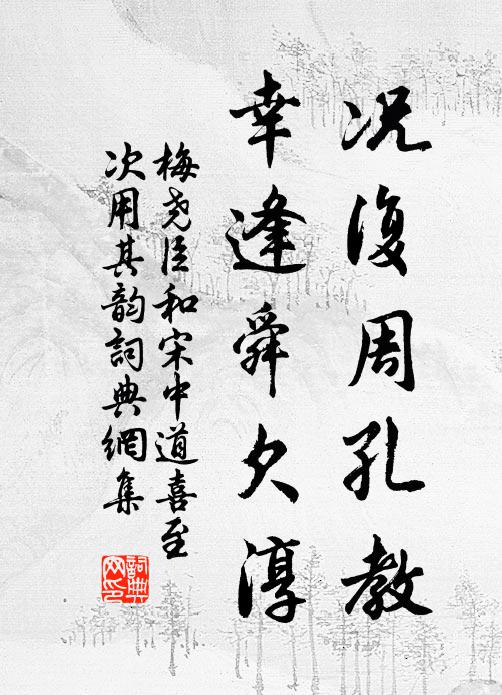 况復周孔教
幸逢舜欠淳
梅尧臣和宋中道喜至
次用其韵詞典網集
詞典網印